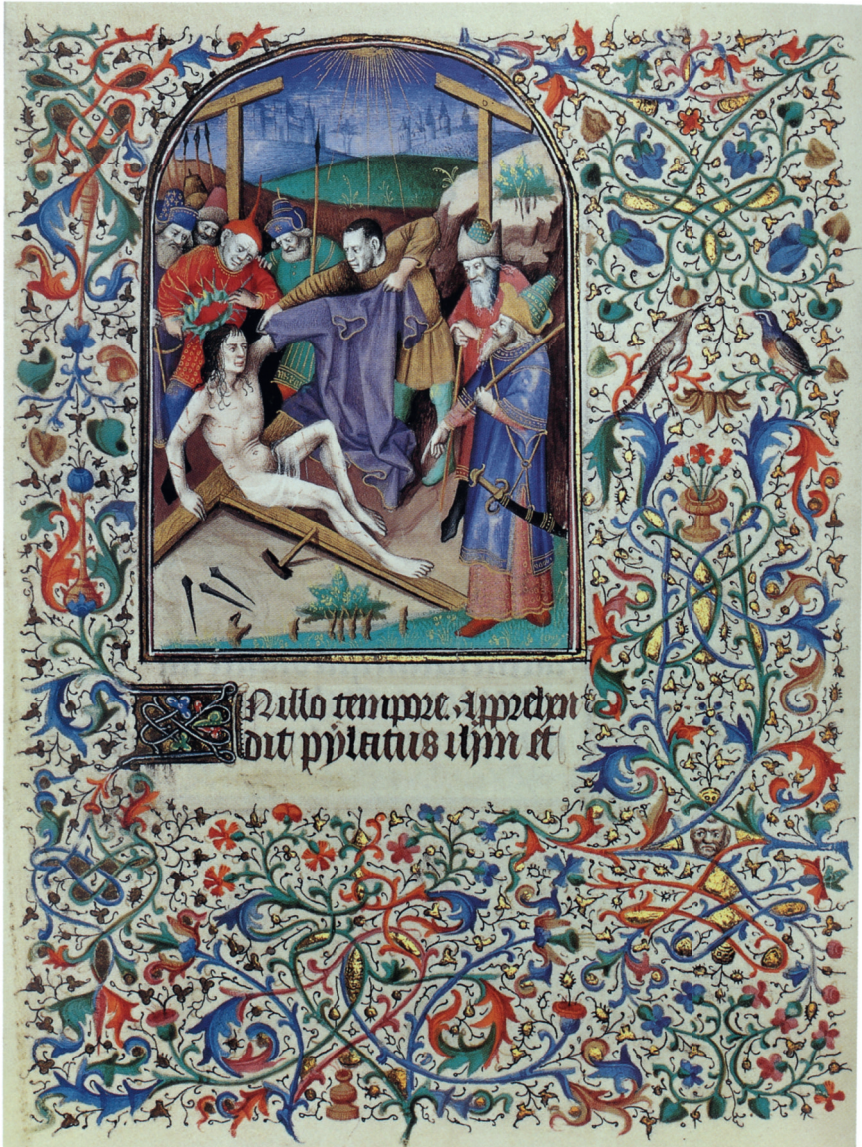 IN illo tempore. Apprehen
dit pylatus ihm et